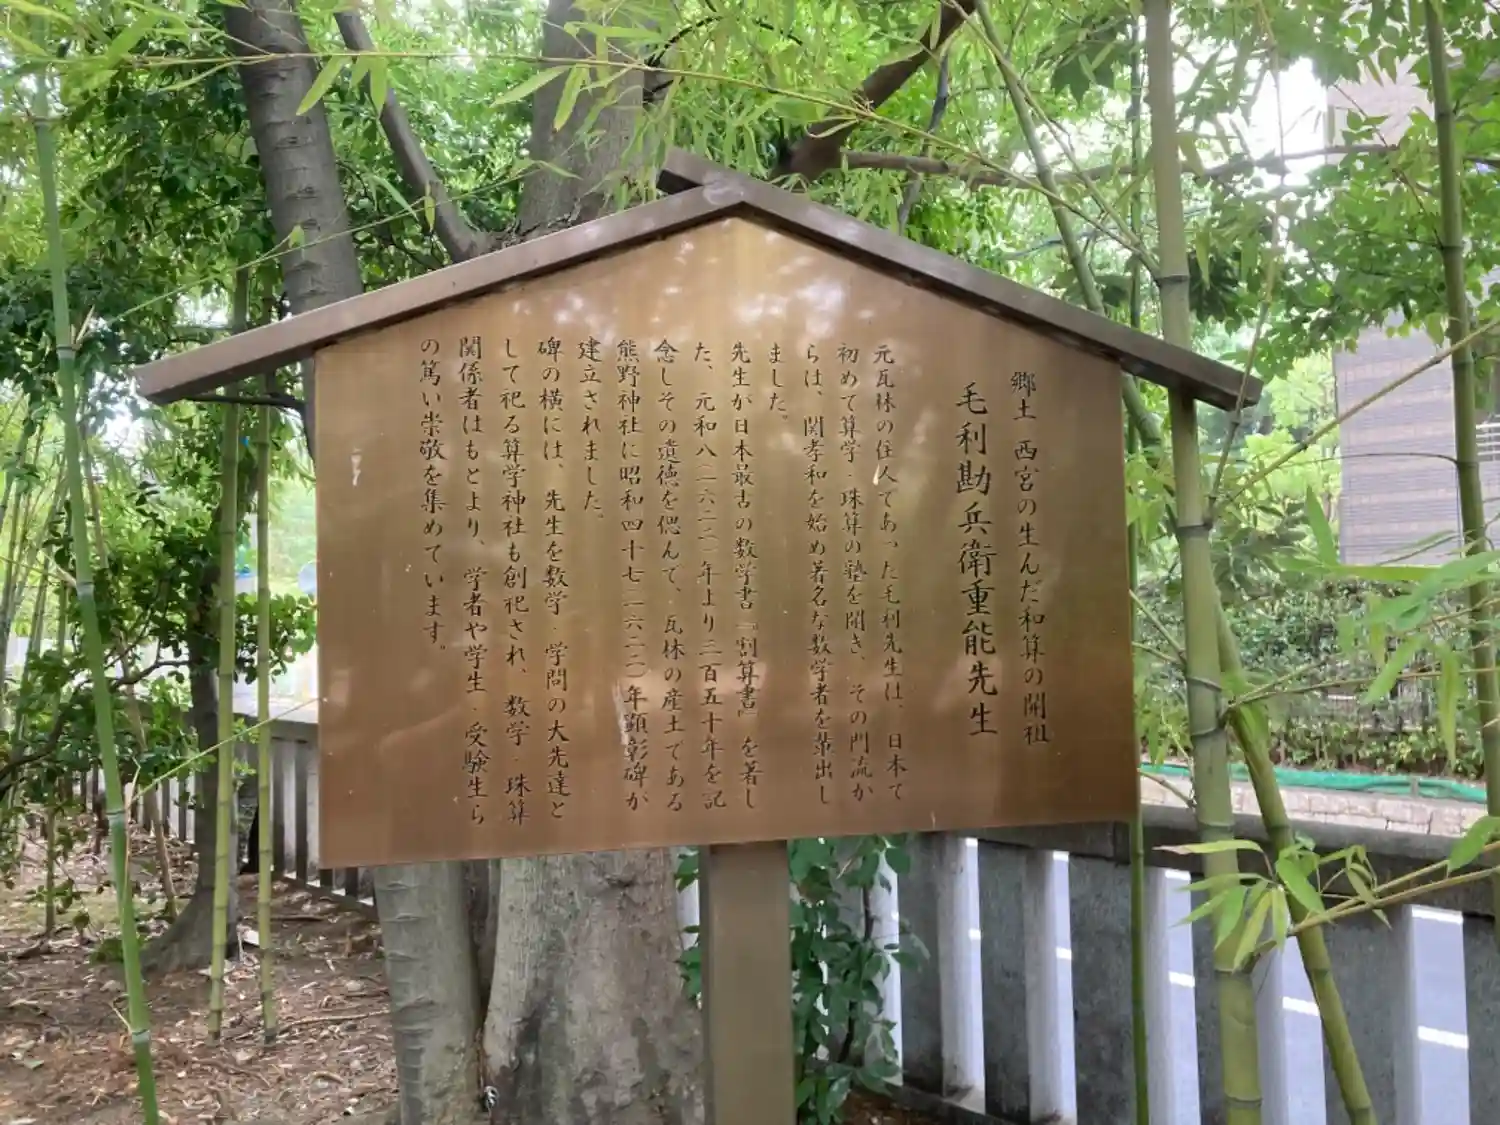 郷土 西宮の生んだ和算の開祖
毛利勘兵衛重能先生
元瓦林の住人であった毛利先生は、日本で
初めて算学・珠算の塾を開き、その門流か
らは、関孝和を始め著名な数学者を輩出し
ました。
先生が日本最古の数学書『割算書』を著し
た、元和八(一六二二)年より三百五十年を記
念しその遺徳を偲んで、瓦林の産土である
熊野神社に昭和四十七(一六二二)年顕彰碑が
建立されました。
碑の横には、先生を数学・学問の大先達と
して祀る算学神社も創祀され、数学・珠算
関係者はもとより、学者や学生・受験生ら
の篤い崇敬を集めています。